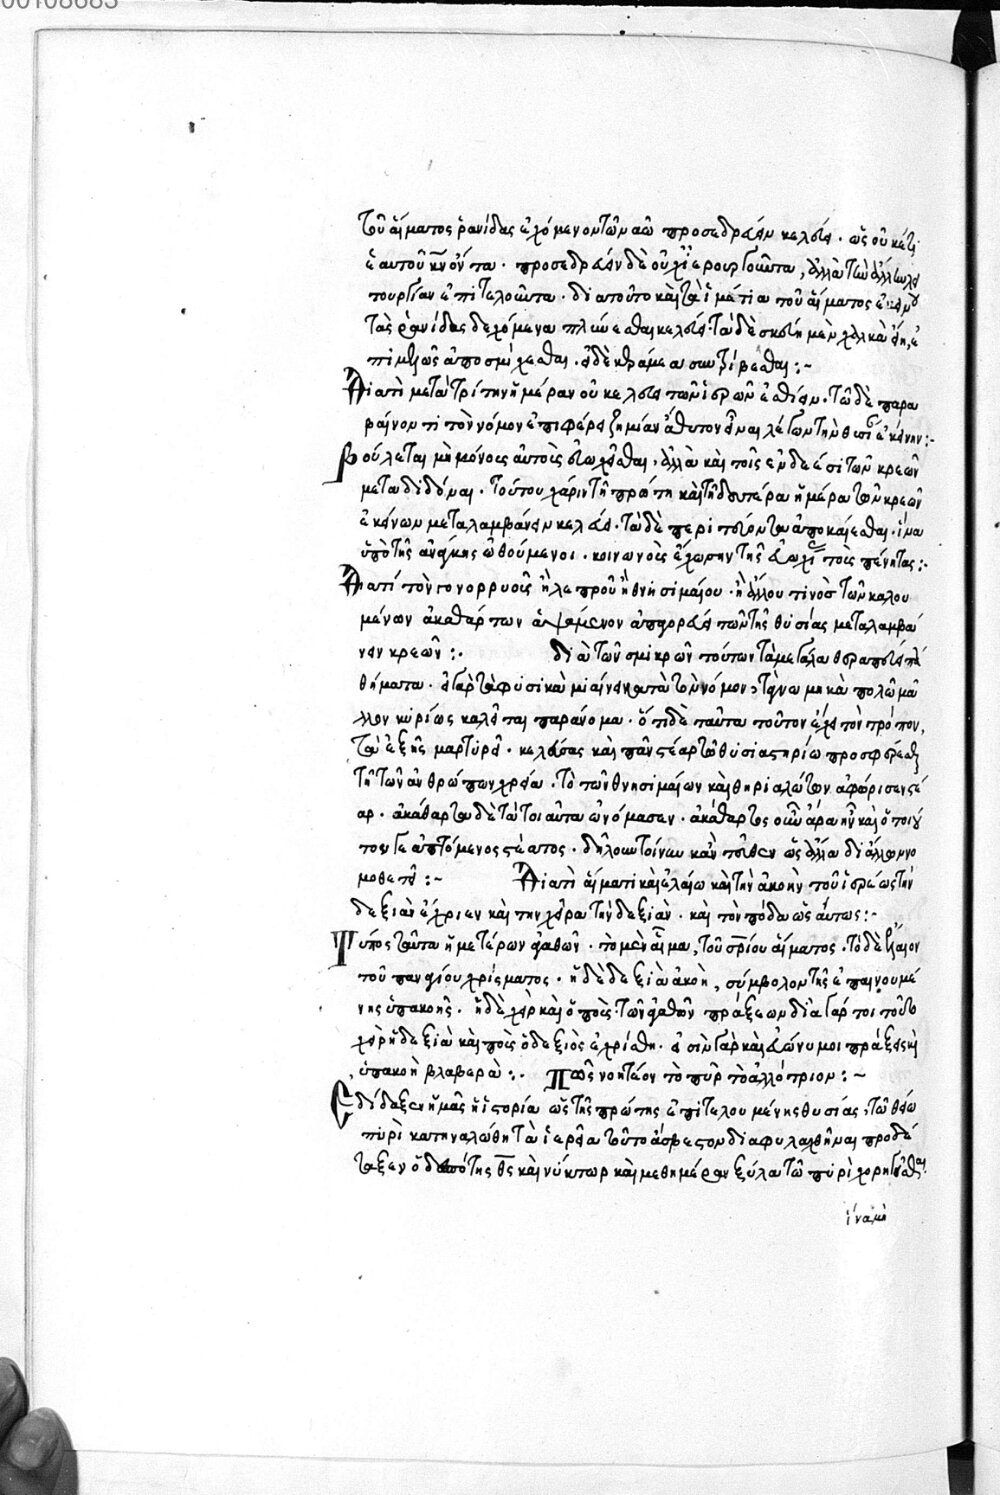 00108683
τοῦ αἵματος ῥανίδας ἐχόμενον τῷ ναῷ προσεδρεύειν κελεύει. ὡς οὐκέτι
ἑαυτοῦ κύριον ὄντα. προσεδρεύειν δὲ οὐχ ἱερουργοῦντα, ἀλλὰ τὴν ἄλλην λει
τουργίαν ἐπιτελοῦντα. διατοῦτο καὶ τὰ ἱμάτια τοῦ αἵματος
τὰς ῥανίδας δεχόμενα πλύνεσθαι κελεύει. τὰ δὲ σκεύη μὲν χαλκᾶ εἴη, ἐ
πιμελῶς ἀποσμήχεσθαι. εἰ δὲ κεράμεα συντρίβεσθαι :~
Διατί μετὰ τρίτην ἡμέραν οὐ κελεύει τῶν ἱερῶν ἐσθίειν. τῷ δὲ παρα
βαίνοντι τὸν νόμον ἐπιφέρει ζημίαν ἄθυτον εἶναι λέγων τὴν θυσίαν ἐκείνην :-
βούλεται μὴ μόνους αὐτοὺς εὐωχεῖσθαι, ἀλλὰ καὶ τοῖς ἐνδεέσι τῶν κρεῶν
μεταδιδόναι. τούτου χάριν τῇ πρώτῃ καὶ τῇ δευτέρᾳ ἡμέρᾳ τῶν κρεῶν
ἐκείνων μεταλαμβάνειν κελεύει. τὰ δὲ περιττεύοντα ἀποκαίεσθαι. ἵνα
ὑπὸ τῆς ἀνάγκης ὠθούμενοι. κοινωνοὺς ἔχωσιν τῆς εὐωχίας τοὺς πένητας :-
Διατί τὸν γονορρυοῦς ἢ λεπροῦ ἢ θνησιμαίου. ἢ ἄλλου τινὸς τῶν καλου
μένων ἀκαθάρτων ἁψάμενον ἀπαγορεύει τῶν τῆς θυσίας μεταλαμβά
νειν κρεῶν :. διὰ τῶν σμικρῶν τούτων τὰ μεγάλα θεραπεύει πα
θήματα. εἰ γὰρ τὰ φυσικὰ μιαίνει κατὰ τὸν νόμον, τὰ γνωμηκὰ πολλῷ μᾶ
λλον κυρίως καλεῖται παράνομα. ὅτι δὲ ταῦτα τοῦτον ἔχει τὸν τρόπον,
τὰ ἑξῆς μαρτυρεῖ. κελεύσας καὶ πᾶν στέαρ τῷ θυσιαστηρίῳ προσφέρεσθαι
τῇ τῶν ἀνθρώπων χρεία. τὸ τῶν θνησιμαίων καὶ θηριαλώτων ἀφώρισεν στέ
αρ. ἀκάθαρτα δὲ τὰ τοιαῦτα ὠνόμασεν. ἀκάθαρτος οὖν ἄρα ἦν καὶ ὁ τοιού
του γε ἁπτόμενος στέατος. δῆλον τοίνυν κἀντεῦθεν ὡς ἄλλα δι' ἄλλων νο
μοθετεῖ :~ Διατί αἵματι καὶ ἐλαίω καὶ τὴν ἀκοὴν τοῦ ἱερέως τὴν
δεξιὰν ἔχριεν καὶ τὴν χεῖρα τὴν δεξιὰν. καὶ τὸν πόδα ὡσαύτως :-
Τύπος ταῦτα ἡμετέρων ἀγαθῶν. τὸ μὲν αἷμα, τοῦ σωτηρίου αἵματος. τὸ δὲ ἔλαιον
τοῦ παναγίου χρίσματος. ἡ δὲ δεξιὰ ἀκοὴ, σύμβολον τῆς ἐπαινουμέ
νης ὑπακοῆς. ἡ δὲ χεὶρ καὶ ὁ ποῦς. τῶν ἀγαθῶν πράξεων διὰ γάρ τοι τοῦτο
χεὶρ ἡ δεξιὰ καὶ ποῦς ὁ δεξιὸς ἐχρίσθη. εἰσὶν γὰρ καὶ εὐώνυμοι πράξεις καὶ
ὑπακοὴ βλαβερά :. Πῶς νοητέον τὸ πῦρ τὸ ἀλλότριον :~
Ἐδίδαξεν ἡμᾶς ἡ ἱστορία ὡς τῆς πρώτης ἐπιτελουμένης θυσίας, τῷ θείω
πυρὶ κατηναλώθη τὰ ἱερεῖα τοῦτο ἄσβεστον διαφυλαχθῆναι προσέ
ταξεν ὁ δεσπότης θεὸς καὶ νύκτωρ καὶ μεθημέραν ξύλα τῷ πυρὶ χορηγεῖσθαι
ἵνα μὴ